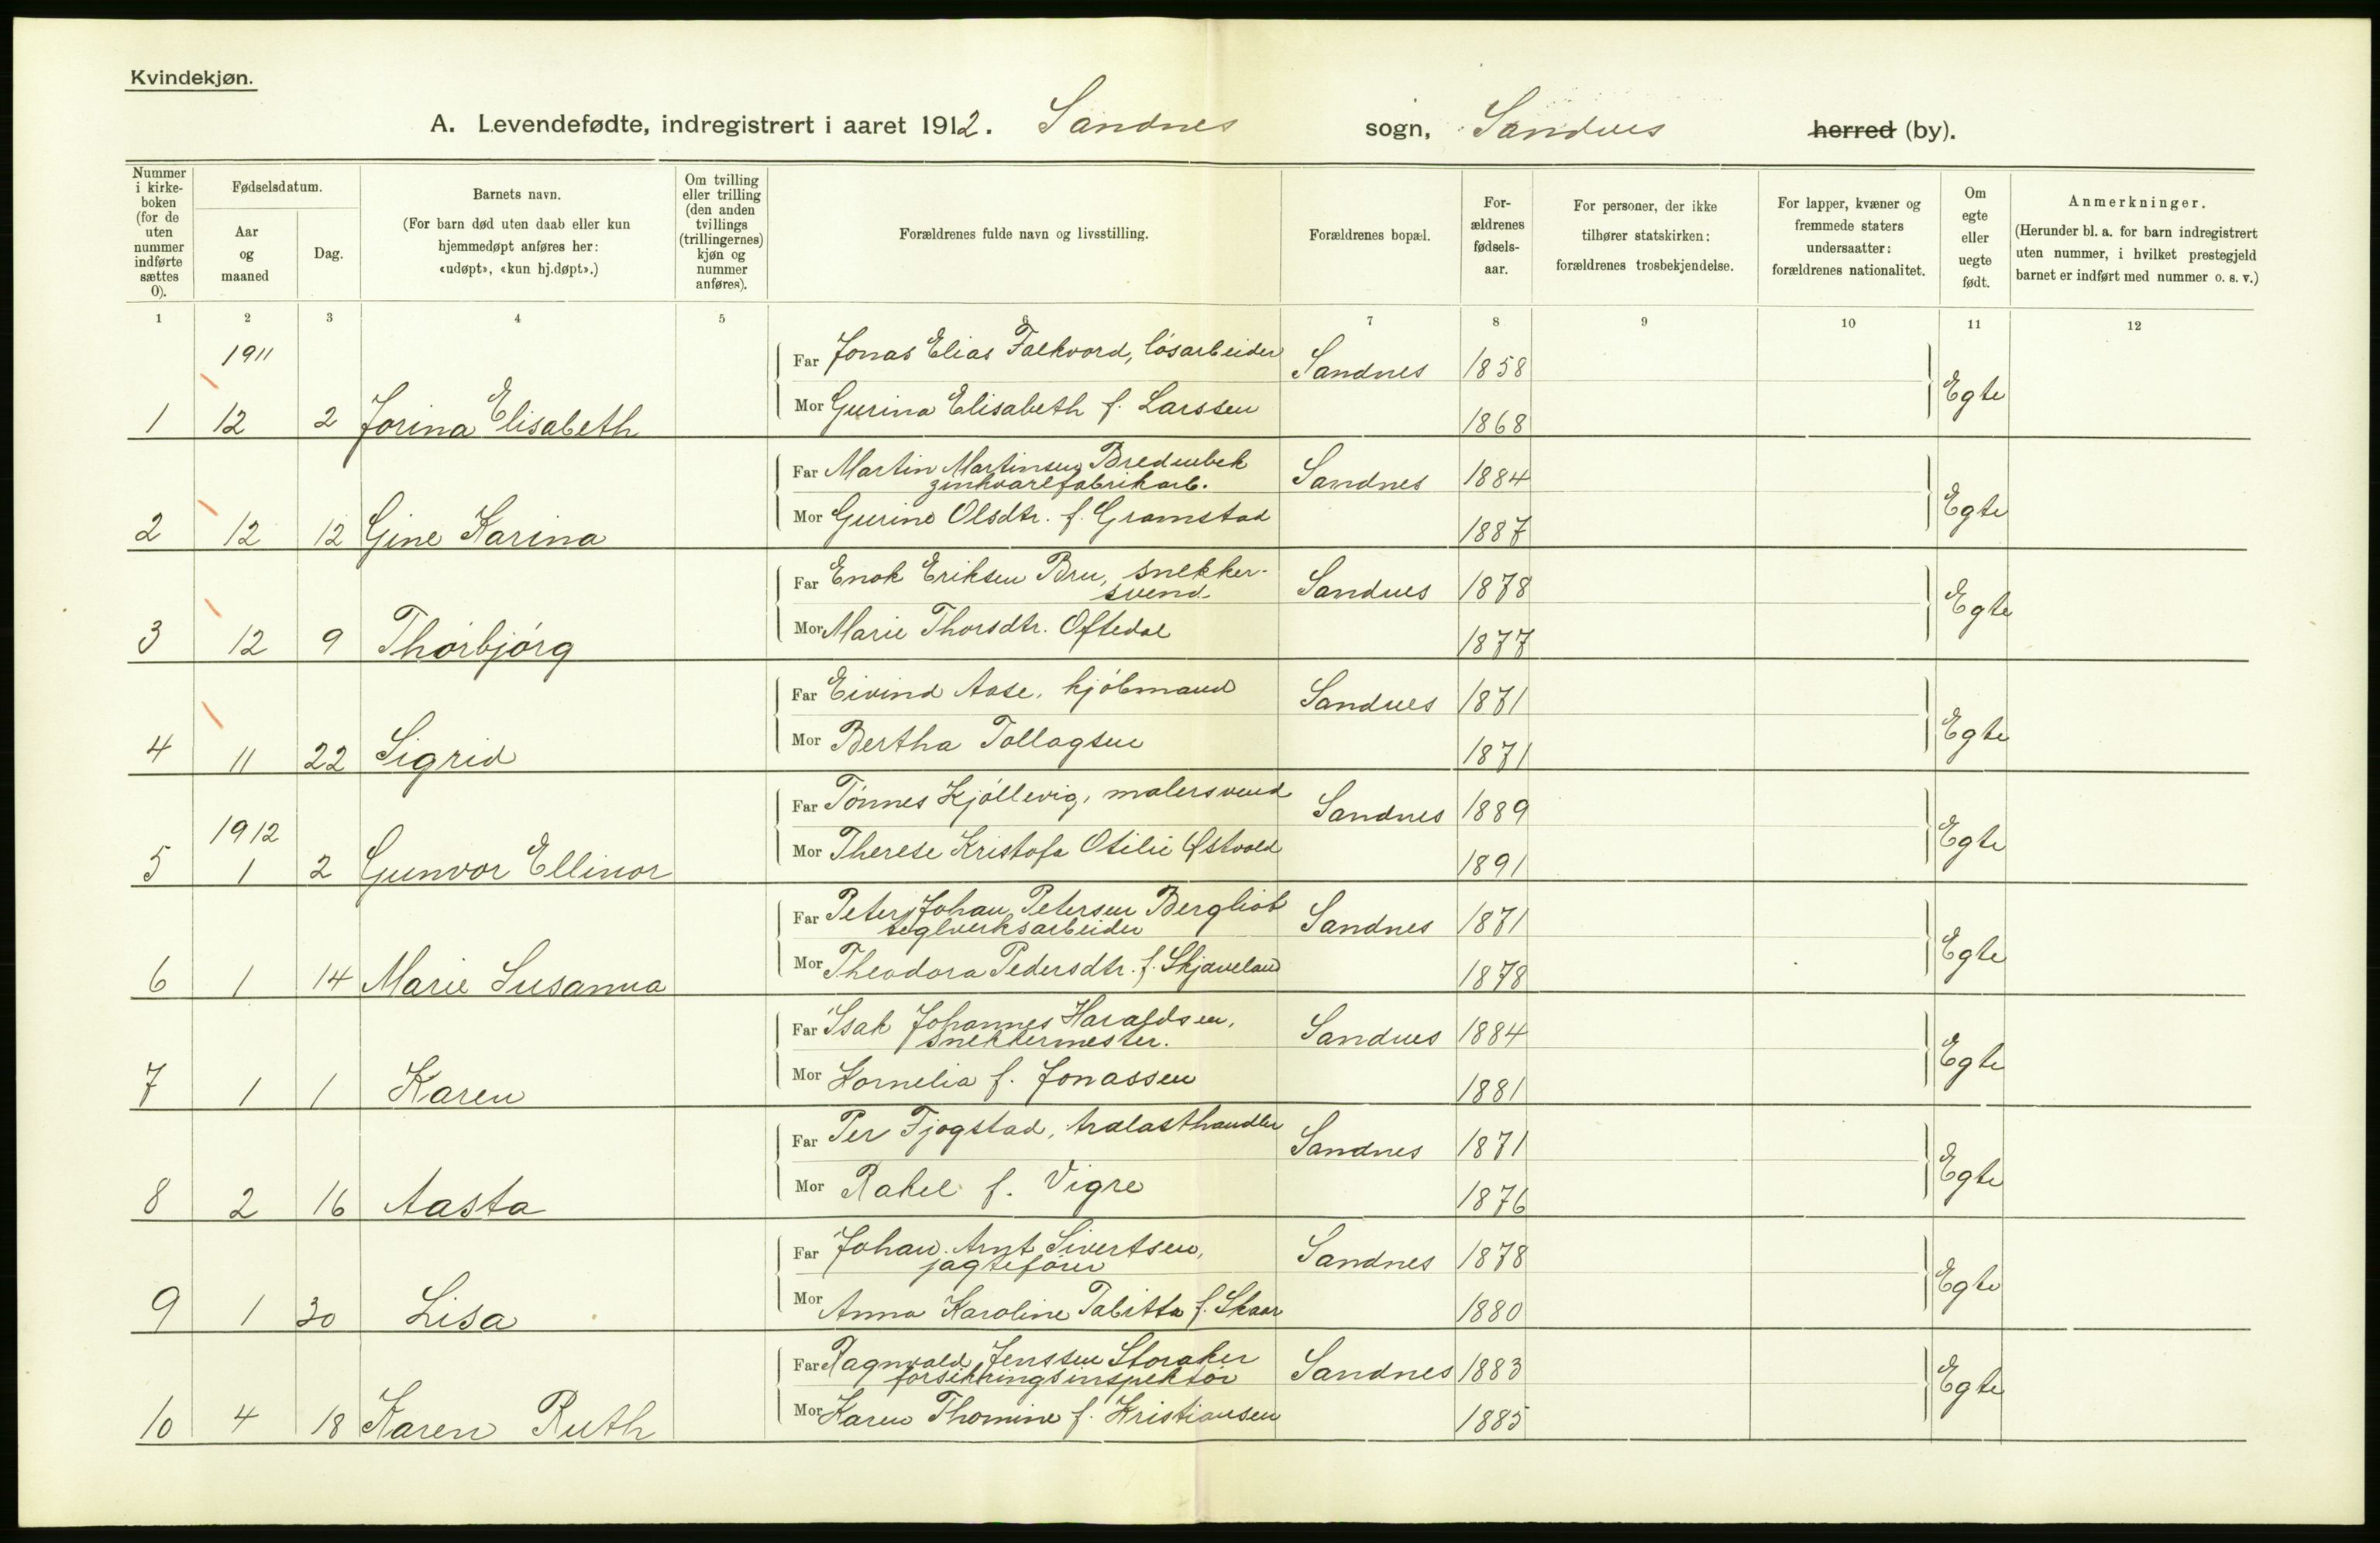 Kvindekjøn.
A. Levendefødte, indregistrert i aaret 1912. Sandnes sogn, Sandnes herred (by).
Nummer i kirke- boken (for de uten nummer indførte sættes 0).
Fødselsdatum.
Aar og maaned
Dag.
Barnets navn.
(For barn død uten daab eller kun hjemmedøpt anføres her: «udøpt», «kun hj.døpt».)
Om tvilling eller trilling (den anden tvillings (trillingernes) kjøn og nummer anføres).
Forældrenes fulde navn og livsstilling.
Forældrenes bopæl.
For- ældrenes fødsels- aar.
For personer, der ikke tilhører statskirken: forældrenes trosbekjendelse.
For lapper, kvæner og fremmede staters undersaatter: forældrenes nationalitet.
Om egte eller uegte født.
Anmerkninger.
(Herunder bl. a. for barn indregistrert uten nummer, i hvilket prestegjeld barnet er indført med nummer o. s. v.)
1 2 3 4 5 6 7 8 9 10 11 12
1911
Far Jonas Elias Falkvord, lösarbeider Sandnes 1858
1 12 2 Jorina Elisabeth Mor Gurina Elisabeth f. Larssen 1868 Egte
Far Martin Martinsen Bredenbek Sandnes 1884
zinkvarefabrikarb.
2 12 12 Gine Karina Mor Gurine Olsdtr. f. Gramstad 1887 Egte
Far Enok Eriksen Bru, snekker- Sandnes 1878
svend
3 12 9 Thorbjörg Mor Marie Thorsdtr. Oftedal 1877 Egte
Far Eivind Aase, kjöbmand Sandnes 1871
4 11 22 Sigrid Mor Bertha Tollagsen 1871 Egte
1912
Far Tönnes Kjöllevig, malersvend Sandnes 1889
5 1 2 Gunvor Ellinor Mor Therese Kristofa Otilie Østvold 1891 Egte
Far Peter Johan Petersen Bergliot Sandnes 1871
teglverksarbeider
6 1 14 Marie Susanna Mor Theodora Pedersdtr. f. Skjæveland 1878 Egte
Far Isak Johannes Haraldsen, Sandnes 1884
snekkermester.
7 1 1 Karen Mor Kornelia f. Jonassen 1881 Egte
Far Per Fjogstad, trælasthandler Sandnes 1871
8 2 16 Aasta Mor Rakel f. Vigre 1876 Egte
Far Johan Arnt Sivertsen, Sandnes 1878
jagtefører
9 1 30 Lisa Mor Anna Karoline Tabitta f. Skaar 1880 Egte
Far Ragnvald Jenssen Storaker Sandnes 1883
forsikringsinspektør
10 4 18 Karen Ruth Mor Karen Thomine f. Kristiansen 1885 Egte